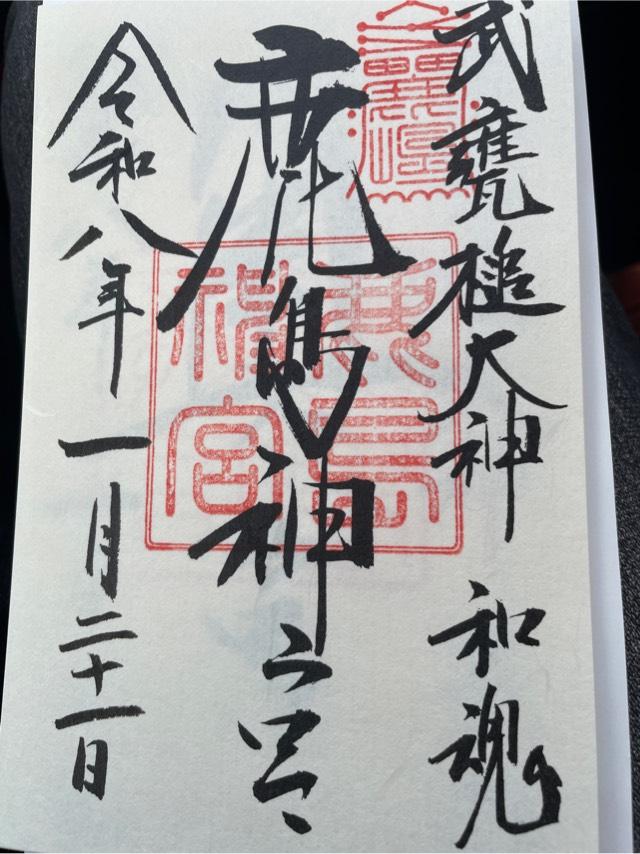 武甕槌大神 和魂
鹿島神宮
令和八年一月二十一日
鹿島
神宮